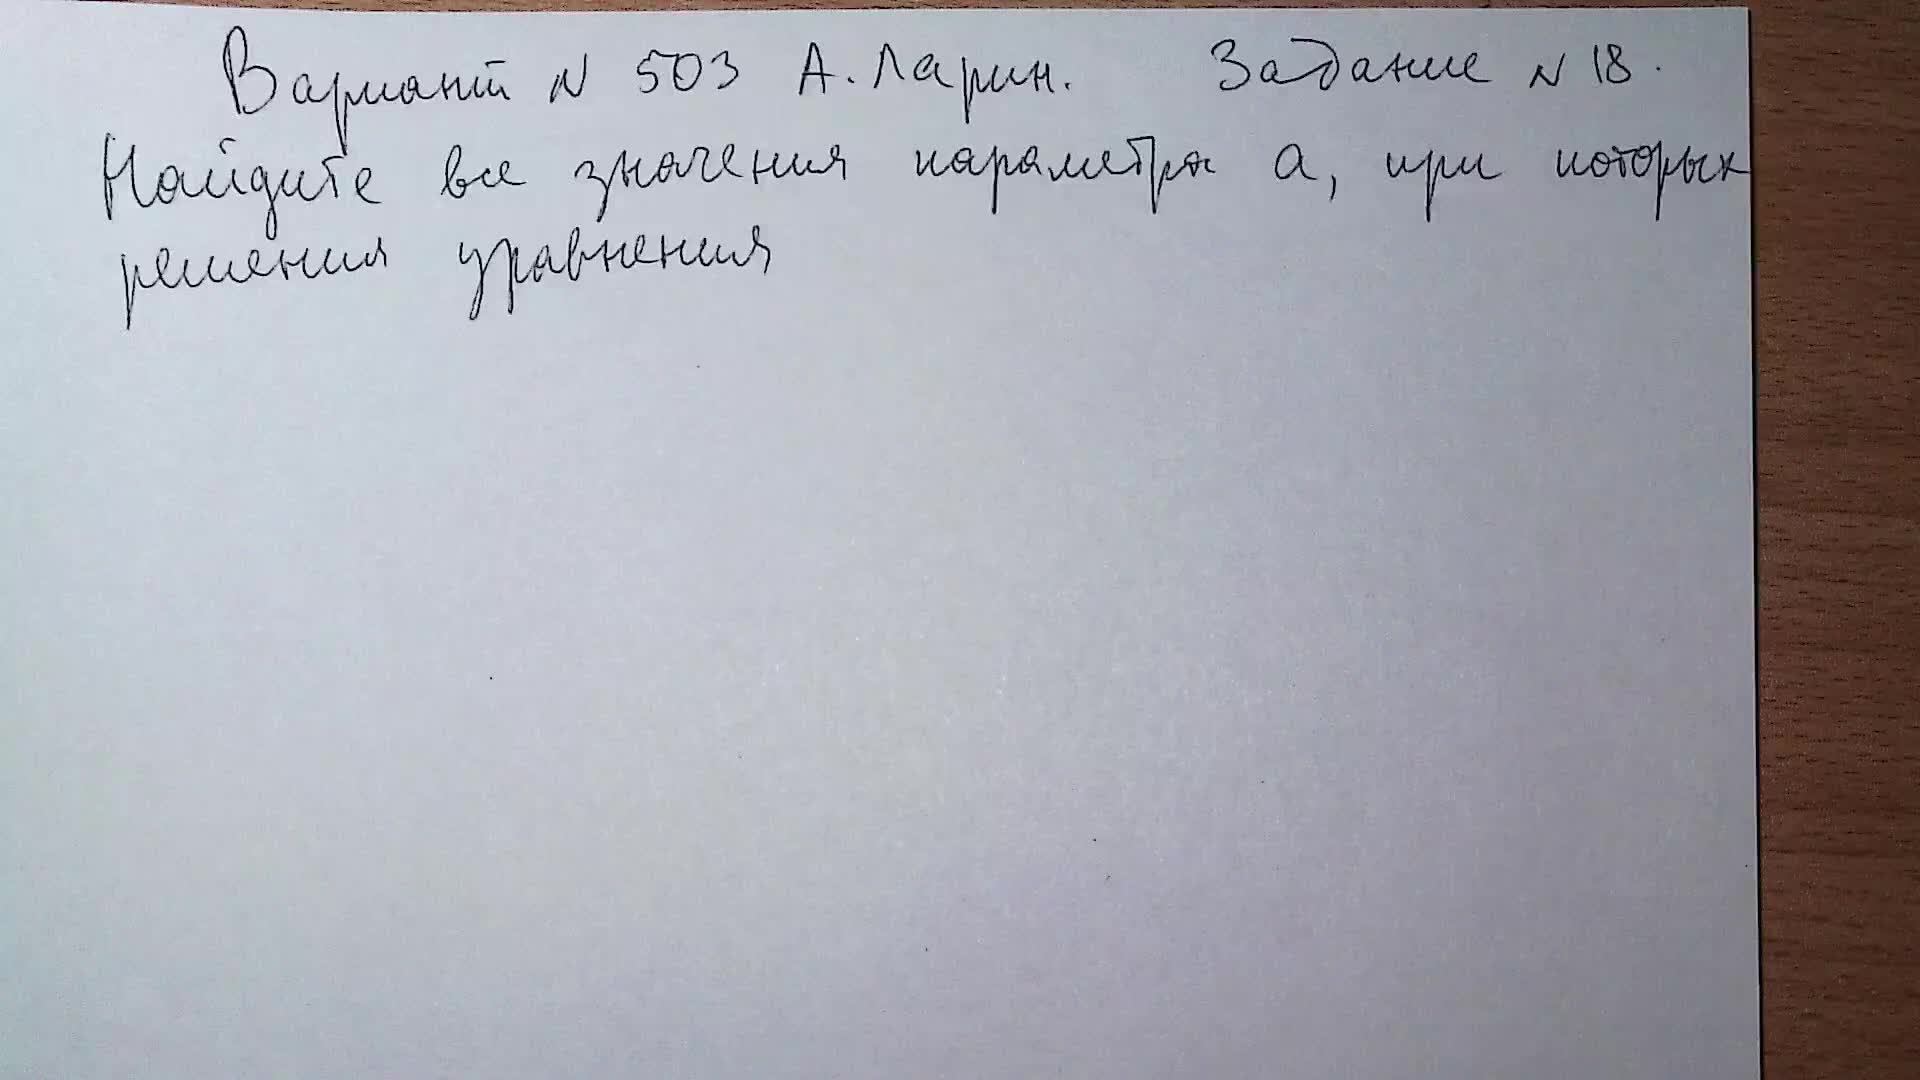 Вариант N 503 А. Ларин. Задание N 18.
Найдите все значения параметра а, при которых
решения уравнения